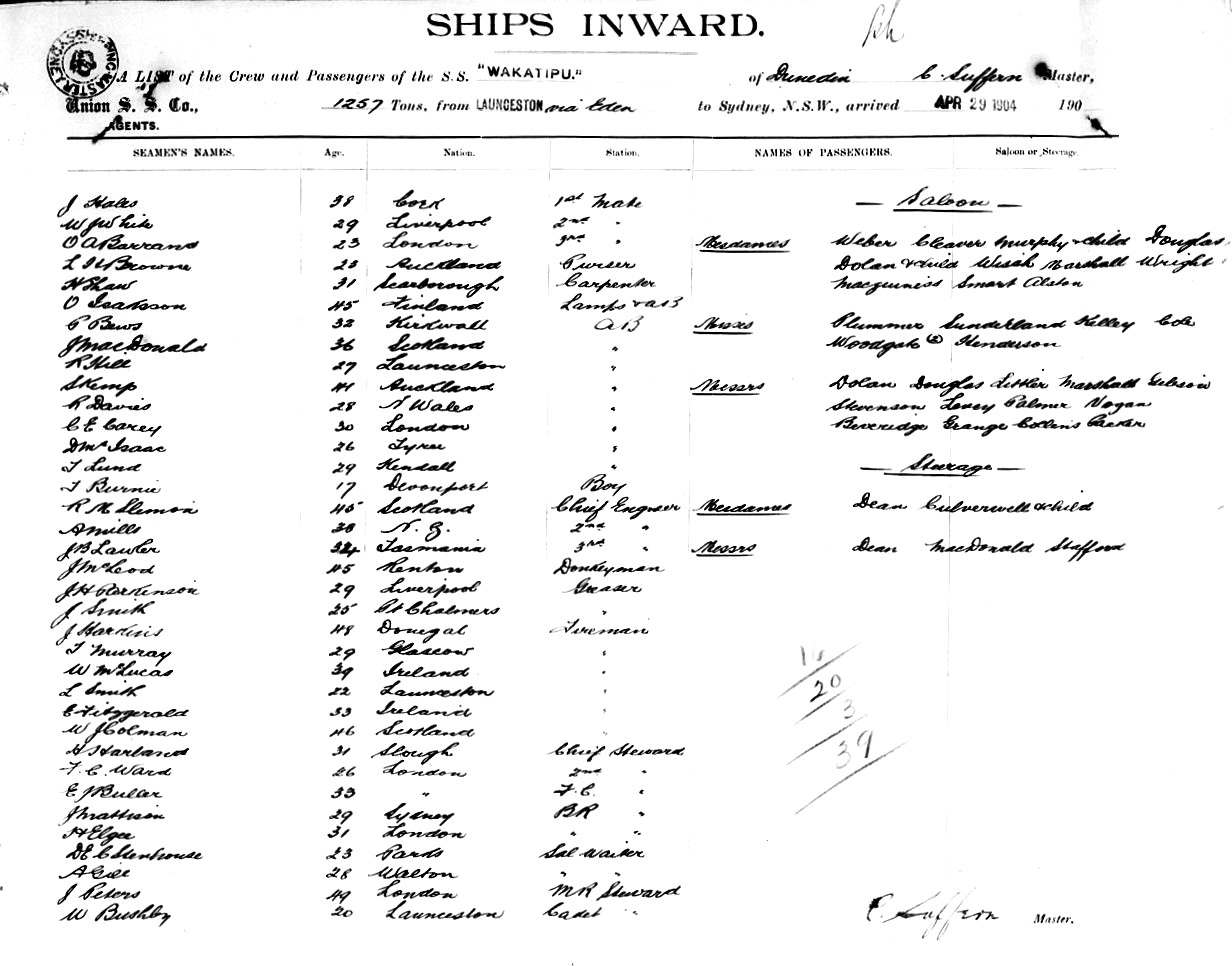 SHIPS INWARD.
A LIST of the Crew and Passengers of the S.S. "WAKATIPU." of Dunedin C. Suffern Master,
Union S. S. Co., 1257 Tons, from LAUNCESTON via Eden to Sydney, N.S.W., arrived APR 29 1904 190
AGENTS.
SEAMEN'S NAMES. Age. Nation. Station. NAMES OF PASSENGERS. Saloon or Steerage.
J Hales 38 Cork 1st Mate — Saloon —
W J White 29 Liverpool 2nd "
O A Barrand 23 London 3rd " Mesdames Weber Cleaver Murphy & child Douglas
L H Browne 25 Auckland Purser Dolan & child Marshall Wright
H Shaw 31 Scarborough Carpenter Macguiness Smart Alston
O Isaksson 45 Finland Lamps & AB
P Bews 32 Kirkwall AB Misses Plummer Sunderland Kelley Cole
J MacDonald 36 Scotland " Woodgate (2) Henderson
R Hill 27 Launceston "
S Kemp 41 Auckland " Messrs Dolan Douglas Littler Marshall Gibson
R Davies 28 N Wales " Stevenson Levey Palmer Vogan
C E Carey 30 London " Beveridge Grange Collins Parker
D Mc Isaac 26 Tyree "
T Lund 29 Kendall " — Steerage —
T Burnie 17 Devonport Boy
R M Slemon 45 Scotland Chief Engneer Mesdames Dean Culverwell & child
A Mills 38 N. Z. 2nd "
J B Lawler 32 Tasmania 3rd " Messrs Dean MacDonald Stafford
J McLeod 45 Renton Donkeyman
J H Parkinson 29 Liverpool Greaser
J Smith 25 Pt Chalmers "
J Harkins 48 Donegal Fireman
T Murray 29 Glascow "
W McLucas 39 Ireland "
L Smith 22 Launceston "
E Fitzgerald 33 Ireland "
W J Colman 46 Scotland "
H Harland 31 Slough Chief Steward
F. C. Ward 26 London 2nd "
E J Buller 33 " F. C. "
J Mathison 29 Sydney BR "
H Elger 31 London " "
D E C Stenhouse 23 Paris Sal Waiter
A Gill 28 Walton "
J Peters 49 London MR Steward
W Bushby 20 Launceston Cadet "
16
20
3
39
C. Suffern Master.